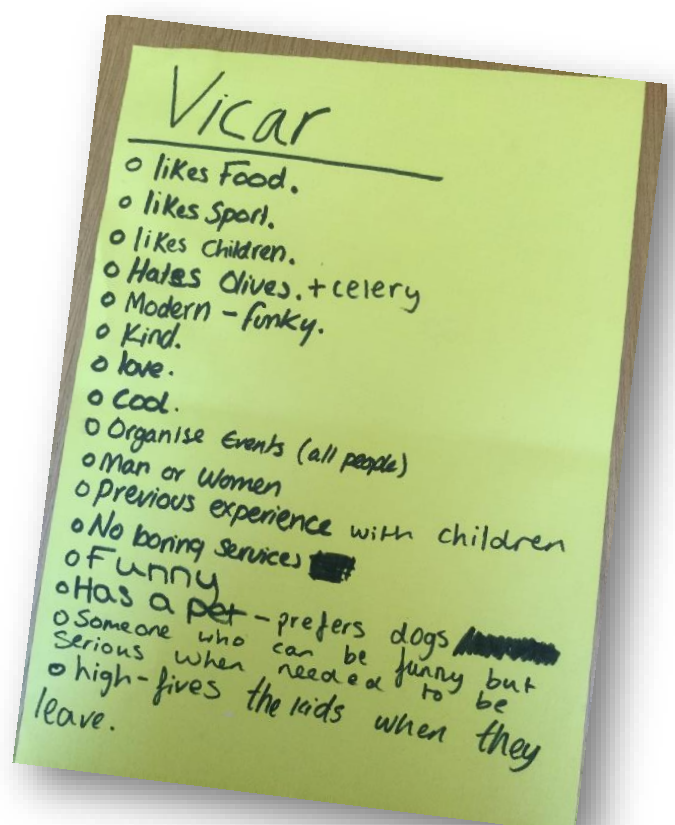 Vicar
o likes Food.
o likes Sport.
o likes Children.
o Hates Olives. + celery
o Modern - funky.
o Kind.
o love.
o cool.
o Organise Events (all people)
o Man or Women
o Previous experience with children
o No boring services
o Funny
o Has a pet - prefers dogs
o Someone who can be funny but
serious when needed to be
o high-fives the kids when they
leave.